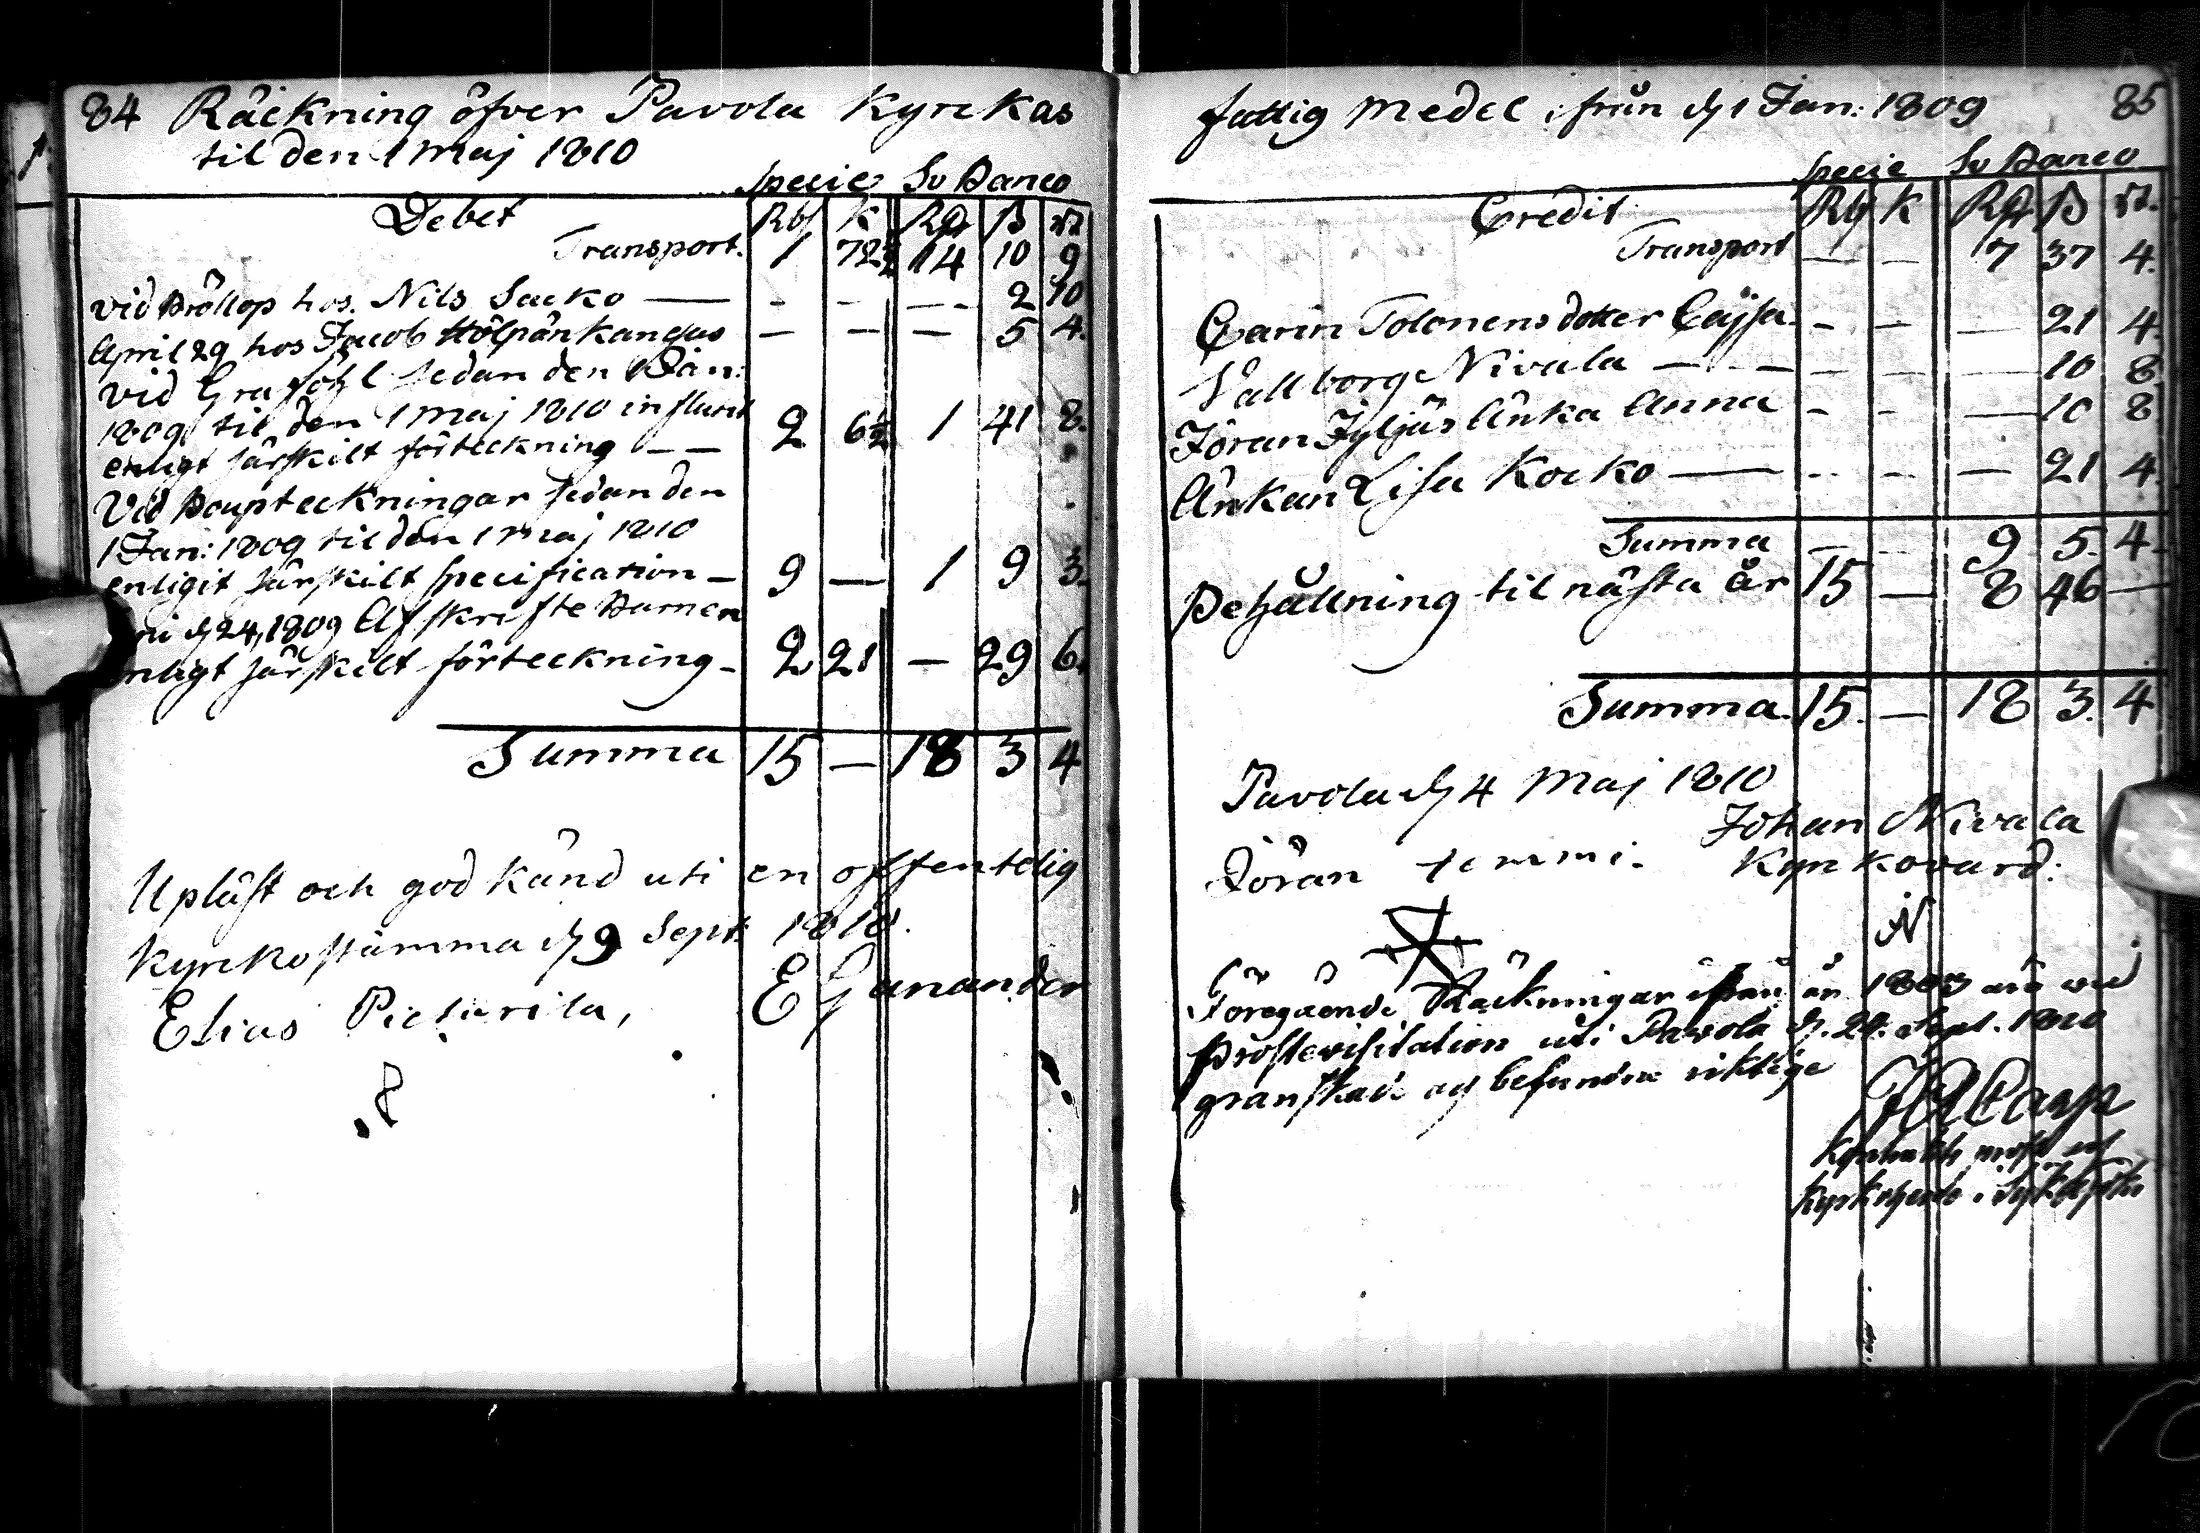 84 Räckning öfver Pavola Kyrckas
til den 1 Maj 1810
Specie Sv Banco
Debet Rbl K Rd ß rst
Transport. 1 72½ 14 10 9
vid Bröllop hos Nils Sacko — - - — 2 10
April 29 hos Jacob Hölpänkangas — — — 5 4.
vid Graföhl sedan den 1 Jan:
1809 til den 1 Maj 1810 influtit
enligt särskilt förteckning — — 2 6½ 1 41 8.
Vid Barnsteckningar sedan den
1 Jan: 1809 til den 1 Maj 1810
enligit särskilt specification — 9 — 1 9 3.
d 24, 1809 Afskrifte
enligt särskilt förteckning — 2 21 — 29 6.
Summa 15 — 18 3 4
Upläst och god känd uti en offentelig
Kyrko stämma d 9 Sept: 1810.
Elias Pietarila, E Ganander
fattig Medel ifrån d 1 Jan: 1809 85
Specie Sv Banco
Credit Rbl K Rd ß rst.
Transport — — 7 37 4.
Carin Tolonens dotter Cajsa - - — 21 4.
Vallborg Nivala — — - - — 10 8
Jöran Jyljäs Änka Anna - - — 10 8
Änkan Lisa Kocko — - - — 21 4.
Summa — - 9 5. 4.
Behållning til nästa år 15 — 8 46 —
Summa 15. — 18 3. 4
Pavola d 4 Maj 1810
Johan Nivala
Jöran Lemmi. Kyrkovärd:
N
Föregående Räckningar ifrån år äro wid
Prostevisitation uti Pavola d. 20. Sept. 1810
granskade och befundne riktige
Kyrkoherde i